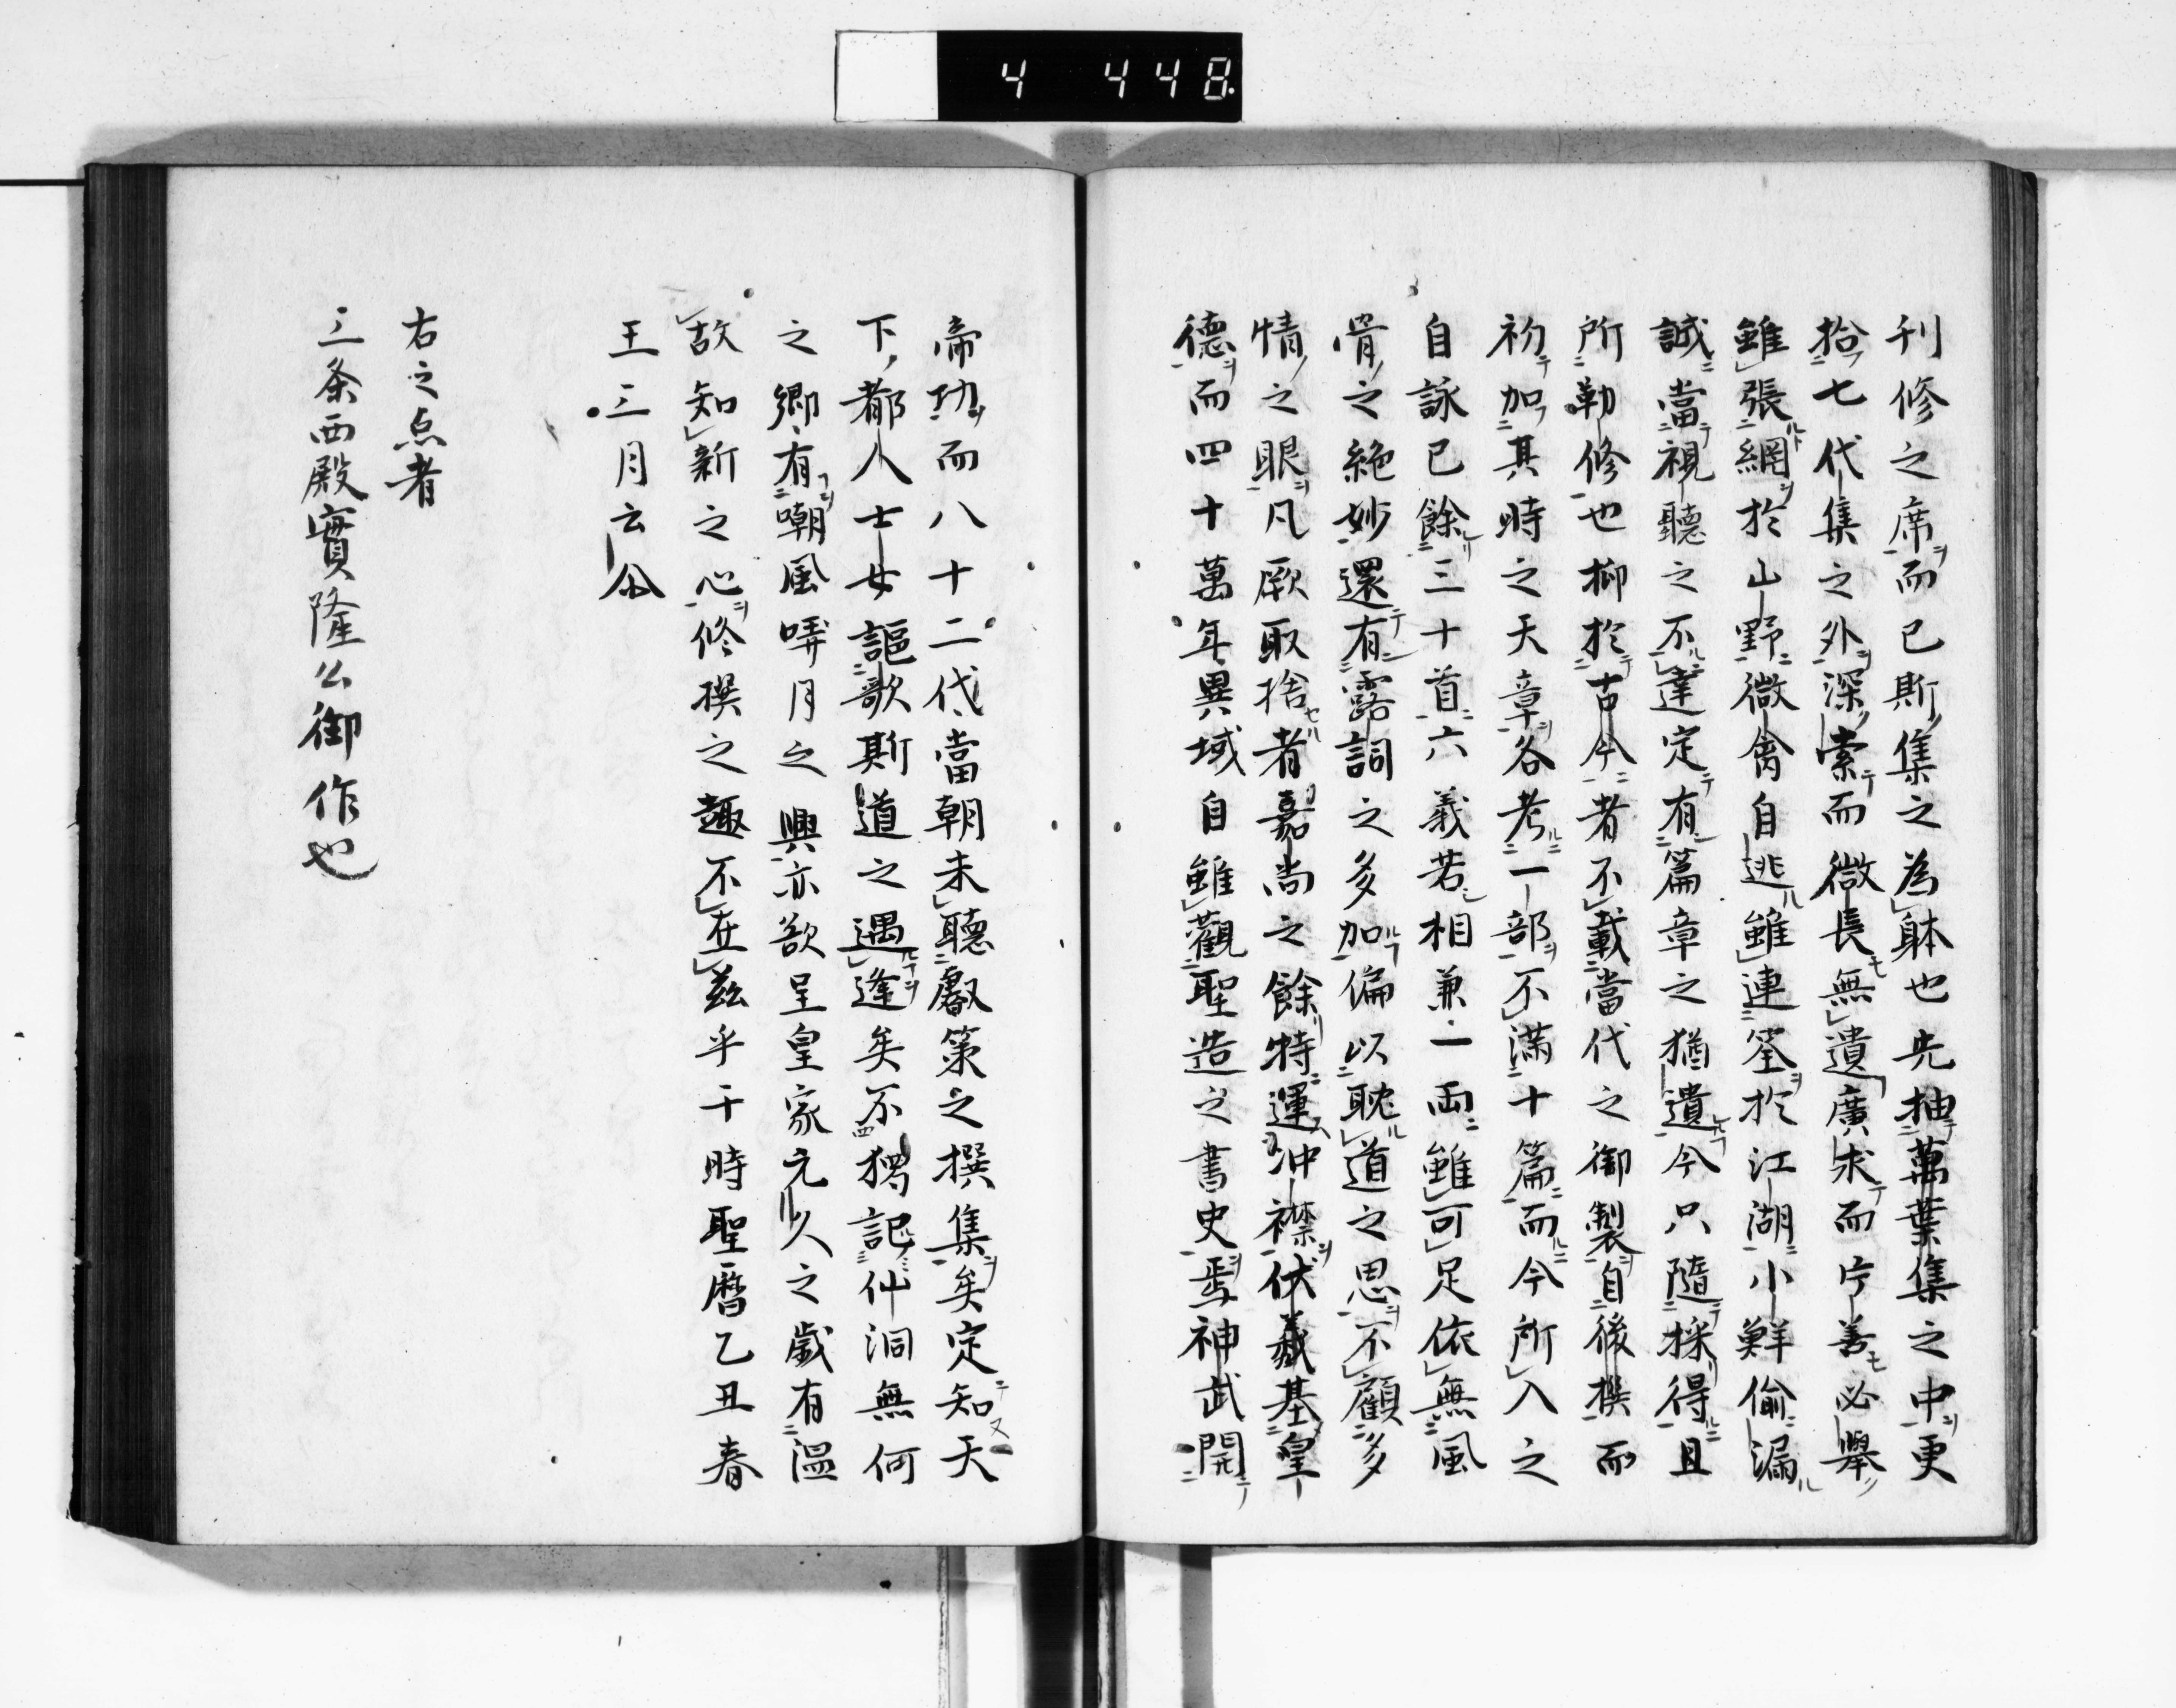 4 448
刊修之席而已斯集之為躰也先抽萬葉集之中更
拾七代集之外深索而微長無遺廣求而片善必舉
雖張網於山野微禽自逃雖連筌於江湖小鮮偷漏
誠當視聽之不達定有篇章之猶遺今只隨採得且
所勒修也抑於古今者不載當代之御製自後撰而
初加其時之天章各考一部不滿十篇而今所入之
自詠已餘三十首六義若相兼一兩雖可足依無風
骨之絶妙還有露詞之多加偏以耽道之思不顧多
情之眼凡厥取捨者嘉尚之餘特運沖襟伏羲基皇
德而四十萬年異域自雖觀聖造之書史焉神武開
帝功而八十二代當朝未聽叡策之撰集矣定知天
下都人士女謳歌斯道之遇逢矣不獨記仙洞無何
之鄉有嘲風哢月之興亦欲呈皇家元久之歲有温
故知新之心修撰之趣不在茲乎于時聖曆乙丑春
王三月云尒
右之点者
三条西殿實隆公御作也